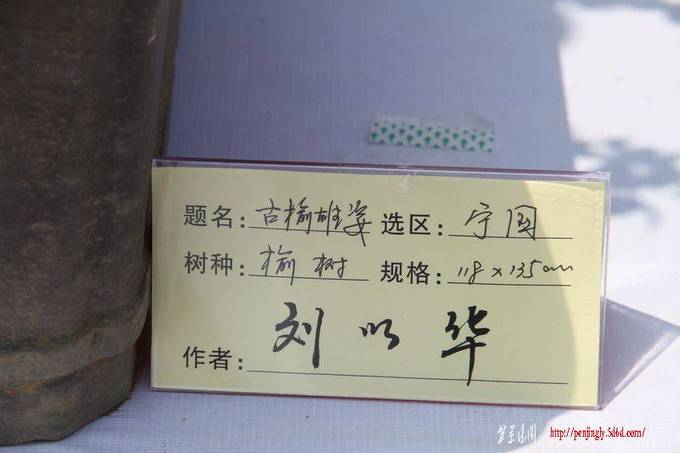 题名：古榆雄姿 选区：宁国
树种：榆树 规格：118×135cm
作者：刘以华
http://penjingly.5d6d.com/